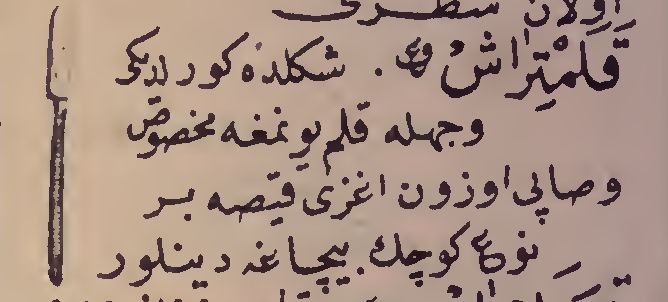 اولان سطرى
قَلَمْتِرَاشْ ع . شكلده كورلديكى
وجهله قلم يونمغه مخصوص
وصاپى اوزون اغزى قيصه بر
نوع كوچك بيچاغه دينلور